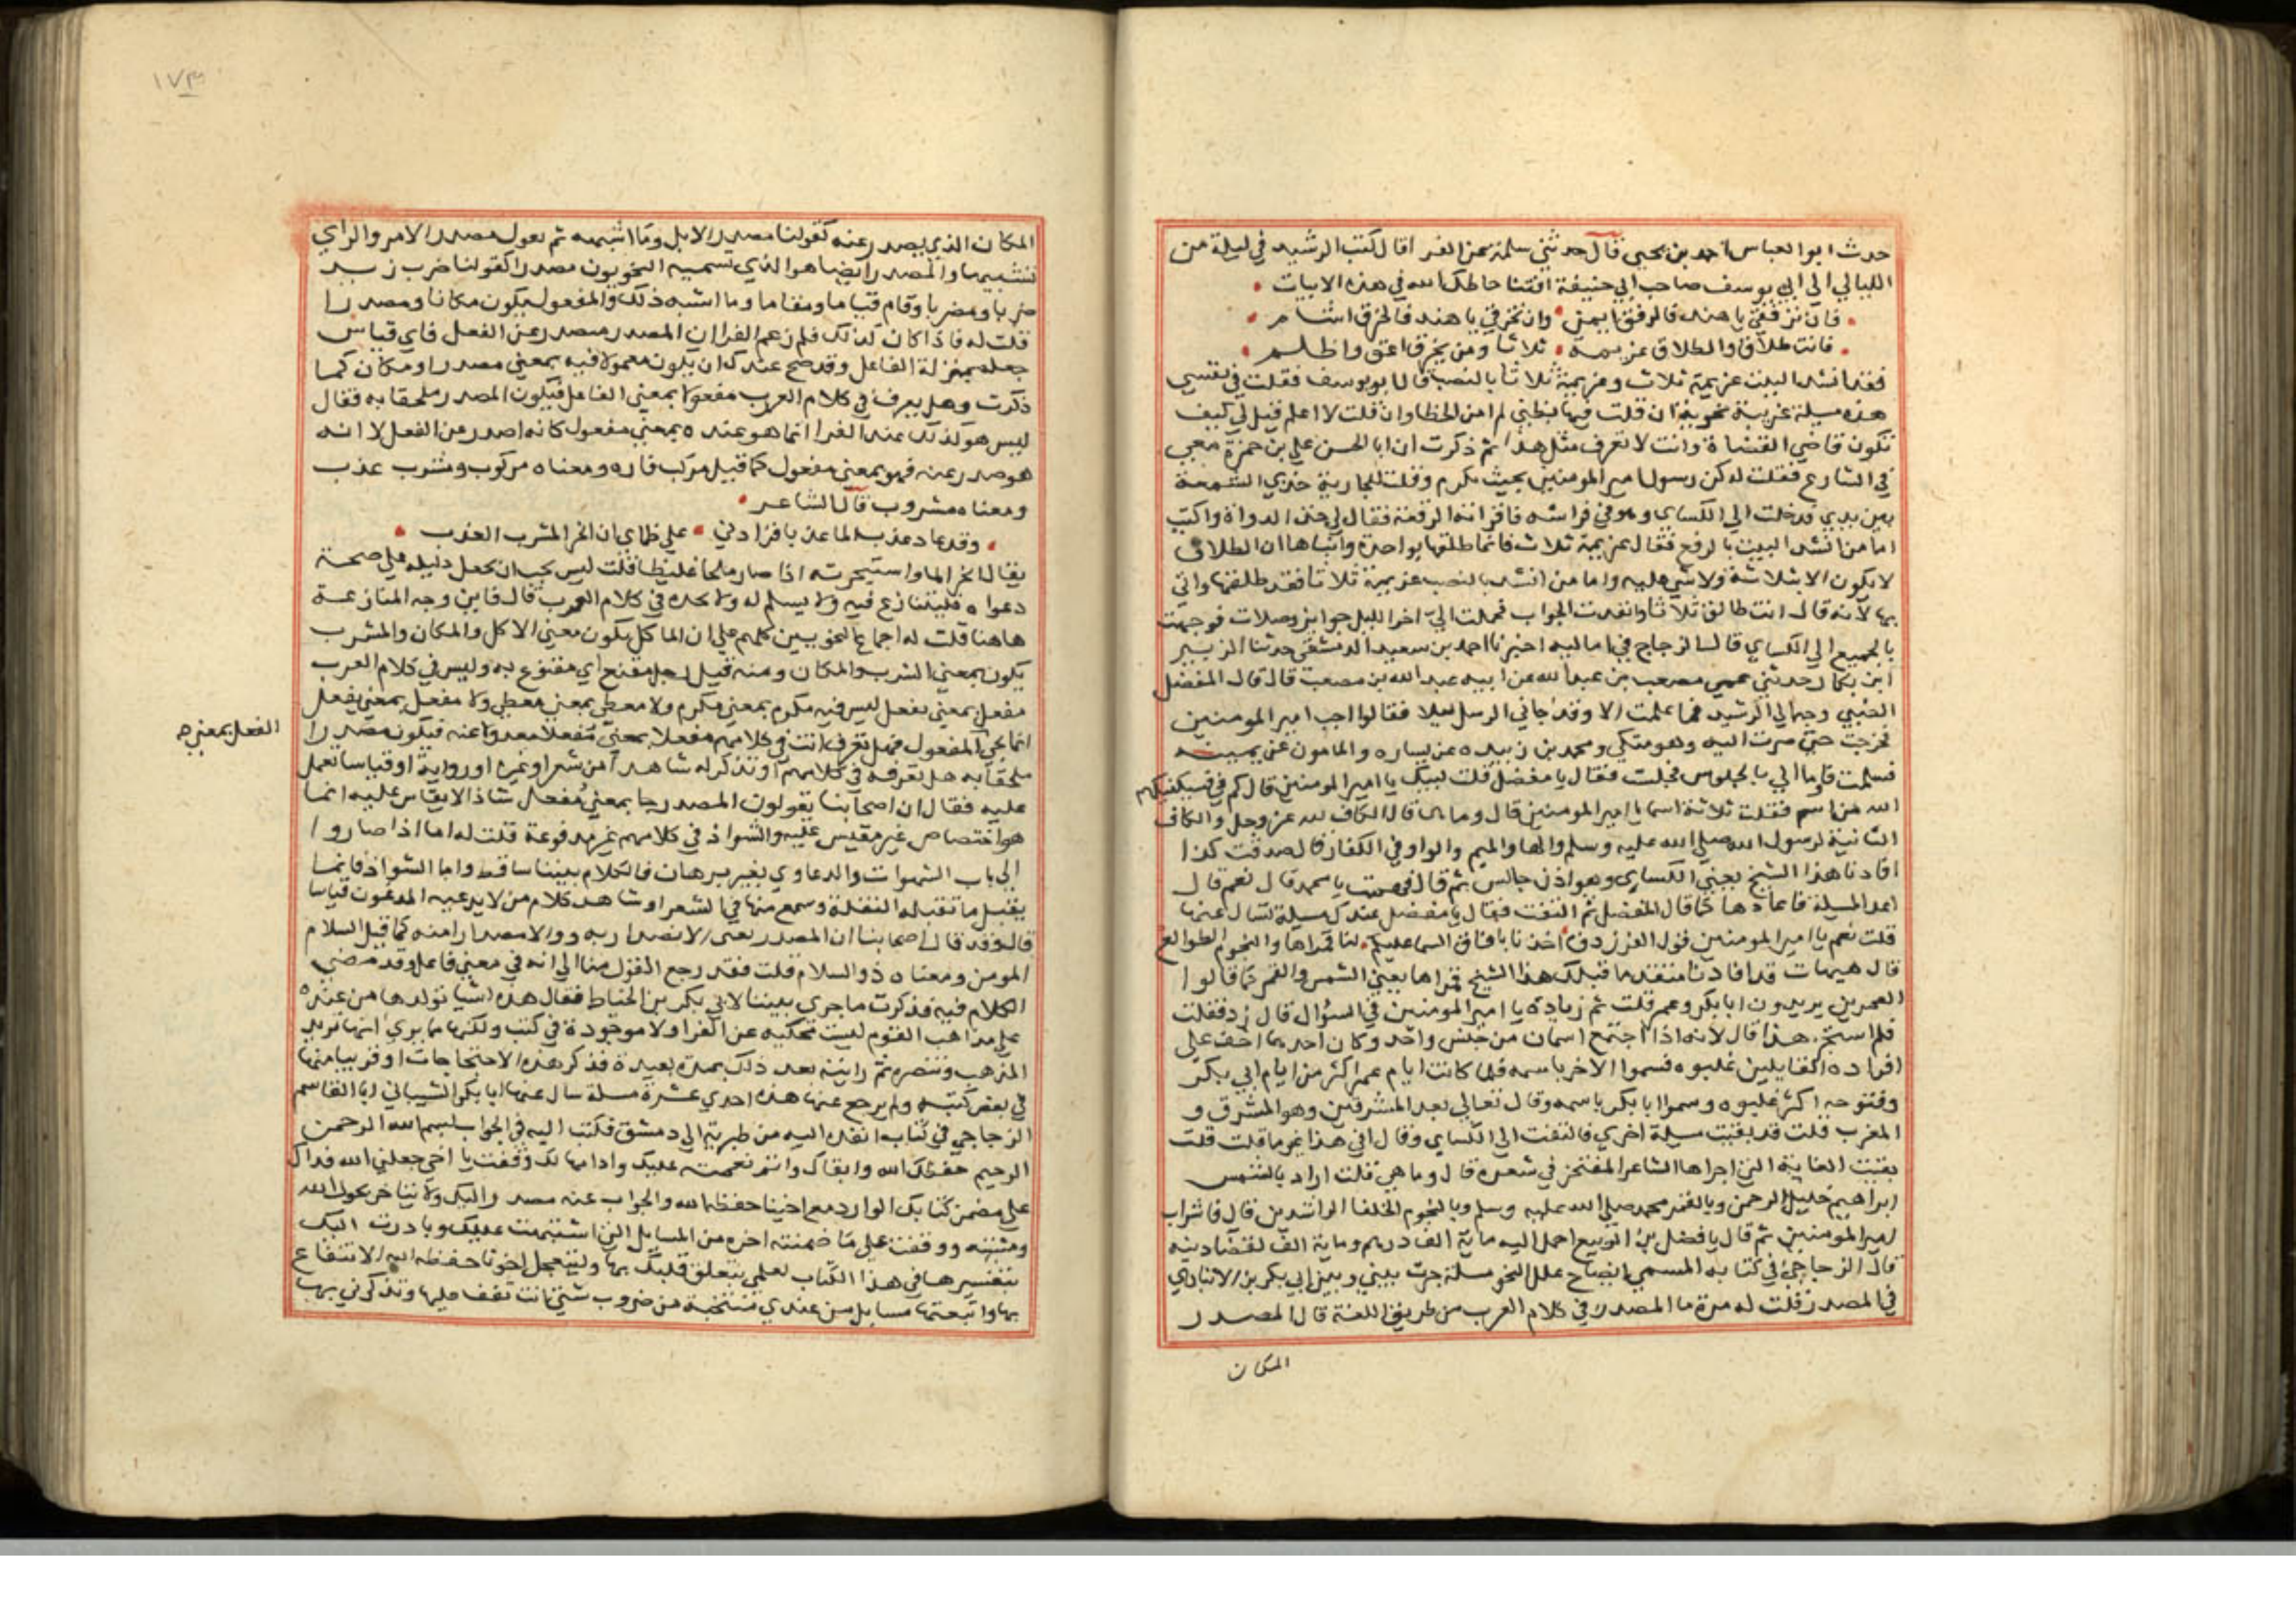 حدث ابو العباس احمد بن يحيى قال حدثني سلمة عن الفرا قال كتب الرشيد في ليلة من
الليالي الى ابي يوسف صاحب ابي حنيفة افتنا حاطك الله في هذه الابيات
فان ترفقي يا هند فالرفق ايمن وان تخرقي يا هند فالخرق اشام
فانت طلاق والطلاق عزيمه ثلاثا ومن يخرق اعق واظلم
فقد انشد البيت عزيمة ثلاث وعزيمة ثلاثا بالنصب قال ابو يوسف فقلت في نفسي
هذه مسيلة غريبة نحوية ان قلت فيها بظني لم امن الخطا وان قلت لا اعلم قيل لي كيف
تكون قاضي القضاة وانت لا تعرف مثل هذا ثم ذكرت ان ابا الحسن علي بن حمزة معي
في الشارع فقلت له كن رسول امير المومنين بحيث مكرم وقلت للجارية خذي الشمعة
بين يدي فدخلت الى الكساي وهو في فراشه فاقراته الرقعة فقال لي خذ الدواة واكتب
اما من انشد البيت بالرفع فقال عزيمة ثلاث فانما طلقها بواحدة وانباها ان الطلاق
لا يكون الا بثلاثة ولا شي عليه واما من انشد بالنصب عزيمة ثلاثا فقد طلقها واتي
بها لانه قال انت طالق ثلاثا وانفدت الجواب فحملت الي اخر الليل جوايز وصلات فوجهت
بالجميع الى الكساي قال الزجاج في اماليه اخبرنا احمد بن سعيد الدمشقي حدثنا الزبير
ابن بكار حدثني عمي مصعب بن عبد الله عن ابيه عبد الله بن مصعب قال قال المفضل
الضبي وجه الي الرشيد فما علمت الا وقد جاني الرسل ليلا فقالوا اجب امير المومنين
فخرجت حتى صرت اليه وهو متكي ومحمد بن زبيده عن يساره والمامون عن يمينه
فسلمت فاوما الي بالجلوس فجلست فقال يا مفضل قلت لبيك يا امير المومنين قال كم في فسيكفيكهم
الله من اسم فقلت ثلاثة اسما يا امير المومنين قال وما هي قال الكاف لله عز وجل والكاف
الثانية لرسول الله صلى الله عليه وسلم والها والميم والواو في الكفار قال صدقت كذا
افادنا هذا الشيخ يعني الكساي وهو اذن جالس ثم قال فهمت يا محمد قال نعم قال
اعد المسيلة فاعادها كما قال المفضل ثم التفت فقال يا مفضل عندك مسيلة تسال عنها
قلت نعم يا امير المومنين قول الفرزدق اخذنا بافاق السما عليكم لنا قمراها والنجوم الطوالع
قال هيهات قد افادنا متقدما قبلك هذا الشيخ قمراها يعني الشمس والقمر كما قالوا
العمرين يريدون ابا بكر وعمر قلت ثم زيادة يا امير المومنين في السؤال قال زد فقلت
فلم استج هذا قال لانه اذا اجتمع اسمان من جنس واحد وكان احدهما اخف على
افواه القايلين غلبوه فسموا الاخر باسمه فلما كانت ايام عمر اكثر من ايام ابي بكر
وفتوحه اكثر غلبوه وسموا ابا بكر باسمه وقال تعالي بعد المشرقين وهو المشرق و
المغرب قلت قد بقيت مسيلة اخري فالتفت الى الكساي وقال افي هذا غير ما قلت قلت
بقيت الغاية التي اجراها الشاعر المفتخر في شعره قال وما هي قلت اراد بالشمس
ابراهيم خليل الرحمن وبالقمر محمد صلى الله عليه وسلم وبالنجوم الخلفا الراشدين قال فاشراب
امير المومنين ثم قال يا فضل بن الربيع احمل اليه ماية الف درهم وماية الف لقضا دينه
قال الزجاجي في كتابه المسمي ايضاح علل النحو مسلة جرت بيني وبين ابي بكر بن الانباري
في المصدر قلت له مرة ما المصدر في كلام العرب من طريق اللغة قال المصدر
المكان
١٧٣
المكان الذي يصدر عنه كقولنا مصدر الابل وما اشبهه ثم نقول مصدر الامر والراي
تشبيها والمصدر ايضا هو الذي تسميه النحويون مصدرا كقولنا ضرب زيد
ضربا ومضربا وقام قياما ومقاما وما اشبه ذلك والمفعول يكون مكانا ومصدرا
قلت له فاذا كان كذلك فلم زعم الفرا ان المصدر مصدر عن الفعل فاي قياس
جعله بمنزلة الفاعل وقد صح عندك ان يكون معمولا فيه بمعني مصدر او مكان كما
ذكرت وهل يعرف في كلام العرب مفعولا بمعني الفاعل فيكون المصدر ملحقا به فقال
ليس هو كذلك عند الفرا انما هو عنده بمعني مفعول كانه اصدر عن الفعل لا انه
هو صدر عنه فهو بمعني مفعول كما قيل مركب فاره ومعناه مركوب ومشرب عذب
ومعناه مشروب قال الشاعر
وقد عاد عذب الما بحرا فزادني علي ظماي ان ابحر المشرب العذب
يقال ابحر الما واستبحرته اذا صار ملحا غليظا قلت ليس يجب ان يجعل دليله علي صحة
دعواه فليتنازع فيه ولا يسلم له ولا نجده في كلام العرب قال فاين وجه المنازعة
هاهنا قلت له اجماع النحويين كلهم علي ان الماكل يكون معني الاكل والمكان والمشرب
يكون بمعني الشرب والمكان ومنه قيل رجل مقنع اي مقنوع به وليس في كلام العرب
مفعل بمعني يفعل ليس فيه مكرم بمعني مكرم ولا معطي بمعني معطي ولا مفعل بمعني يفعل
الفعل بمعني
انما يجي المفعول فهل تعرف انت في كلامهم مفعلا بمعني مفعلا معدولا عنه فيكون مصدرا
ملحقا به هل تعرفه في كلامهم او تذكر له شاهدا من شعر او غيره او رواية او قياسا نعمل
عليه فقال ان اصحابنا يقولون المصدر جا بمعني مفعل شاذ لا يقاس عليه انما
هو اختصاص غير مقيس عليه والشواذ في كلامهم غير مدفوعة قلت له اما اذا صاروا
الى باب الشهوات والدعاوي بغير برهان فالكلام بيننا ساقط واما الشواذ فانما
يقبل ما تقبله النقلة وسمع منها في الشعر او شاهد كلام من لا يدعيه المدعون قياسا
قال وقد قال اصحابنا ان المصدر يعني الانصدار به ذو الاصدار منه كما قيل السلام
المومن ومعناه ذو السلام قلت فقد رجع القول منا الى انه في معني فاعل وقد مضي
الكلام فيه فذكرت ما جري بيننا لابي بكر بن الخياط فقال هذه اشيا تولدها من عنده
علي مذاهب القوم ليست محكيه عن الفرا ولا موجودة في كتب ولكنها ما يري انها تويد
المذهب وتنصره ثم رايته بعد ذلك بمدة بعيدة قد ذكر هذه الاحتجاجات او قريبا منها
في بعض كتبه ولم يرجع عنها هذه احدي عشرة مسلة سال عنها ابا بكر الشيباني ابا القاسم
الزجاجي في كتاب انفده اليه من طبرية الى دمشق فكتب اليه في الجواب بسم الله الرحمن
الرحيم حفظك الله وابقاك واتم نعمته عليك وادامها لك وقفت يا اخي جعلني الله فداك
علي مضمن كتابك الوارد مع اخينا حفظه الله والجواب عنه مصدر واليك ولا يتاخر بحول الله
ومشيته ووقفت علي ما ضمنته اخره من المسايل التي اشتبهت عليك وبادرت اليك
بتفسيرها في هذا الكتاب لعلمي بتعلق قلبك بها وليتعجل اخونا حفظه الله الانتفاع
بها واتبعتها مسايل من عندي منتخبة من ضروب شتي انت تقف عليها وتذكرني بها